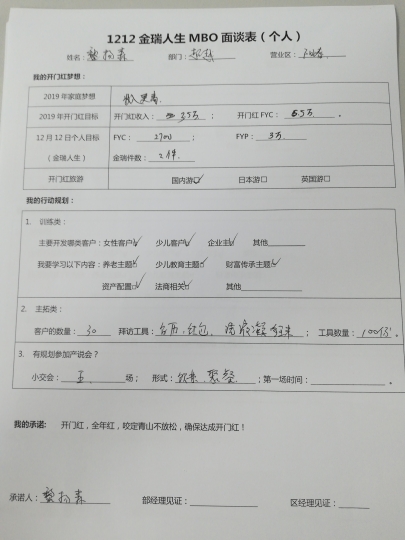 1212金瑞人生MBO面谈表（个人）
姓名： 部门： 营业区：
我的开门红梦想：
2019年家庭梦想
2019年开门红目标 开门红收入： 35万 ； 开门红FYC： 6.5万 。
12月12日个人目标 FYC： ； FYP： 3万
（金瑞人生） 金瑞件数： 2件
开门红旅游 国内游☑ 日本游□ 英国游□
我的行动规划：
1. 训练类：
主要开发哪类客户：女性客户☑ 少儿客户☑ 企业主☑ 其他
我要学习以下内容：养老主题☑ 少儿教育主题☑ 财富传承主题☑
资产配置☑ 法商相关☑ 其他
2. 主拓类：
客户的数量： 30 拜访工具： 台历、红包、 ；工具数量： 100份 。
3. 有规划参加产说会？
小交会： 五 场； 形式： 聚餐 ；第一场时间： 。
我的承诺： 开门红，全年红，咬定青山不放松，确保达成开门红！
承诺人： 部经理见证： 区经理见证：